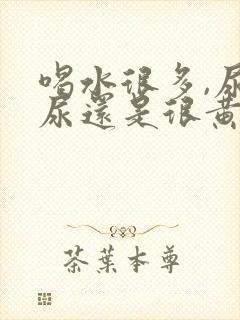 喝水很多,尿
尿還是很黃
茶葉本尊